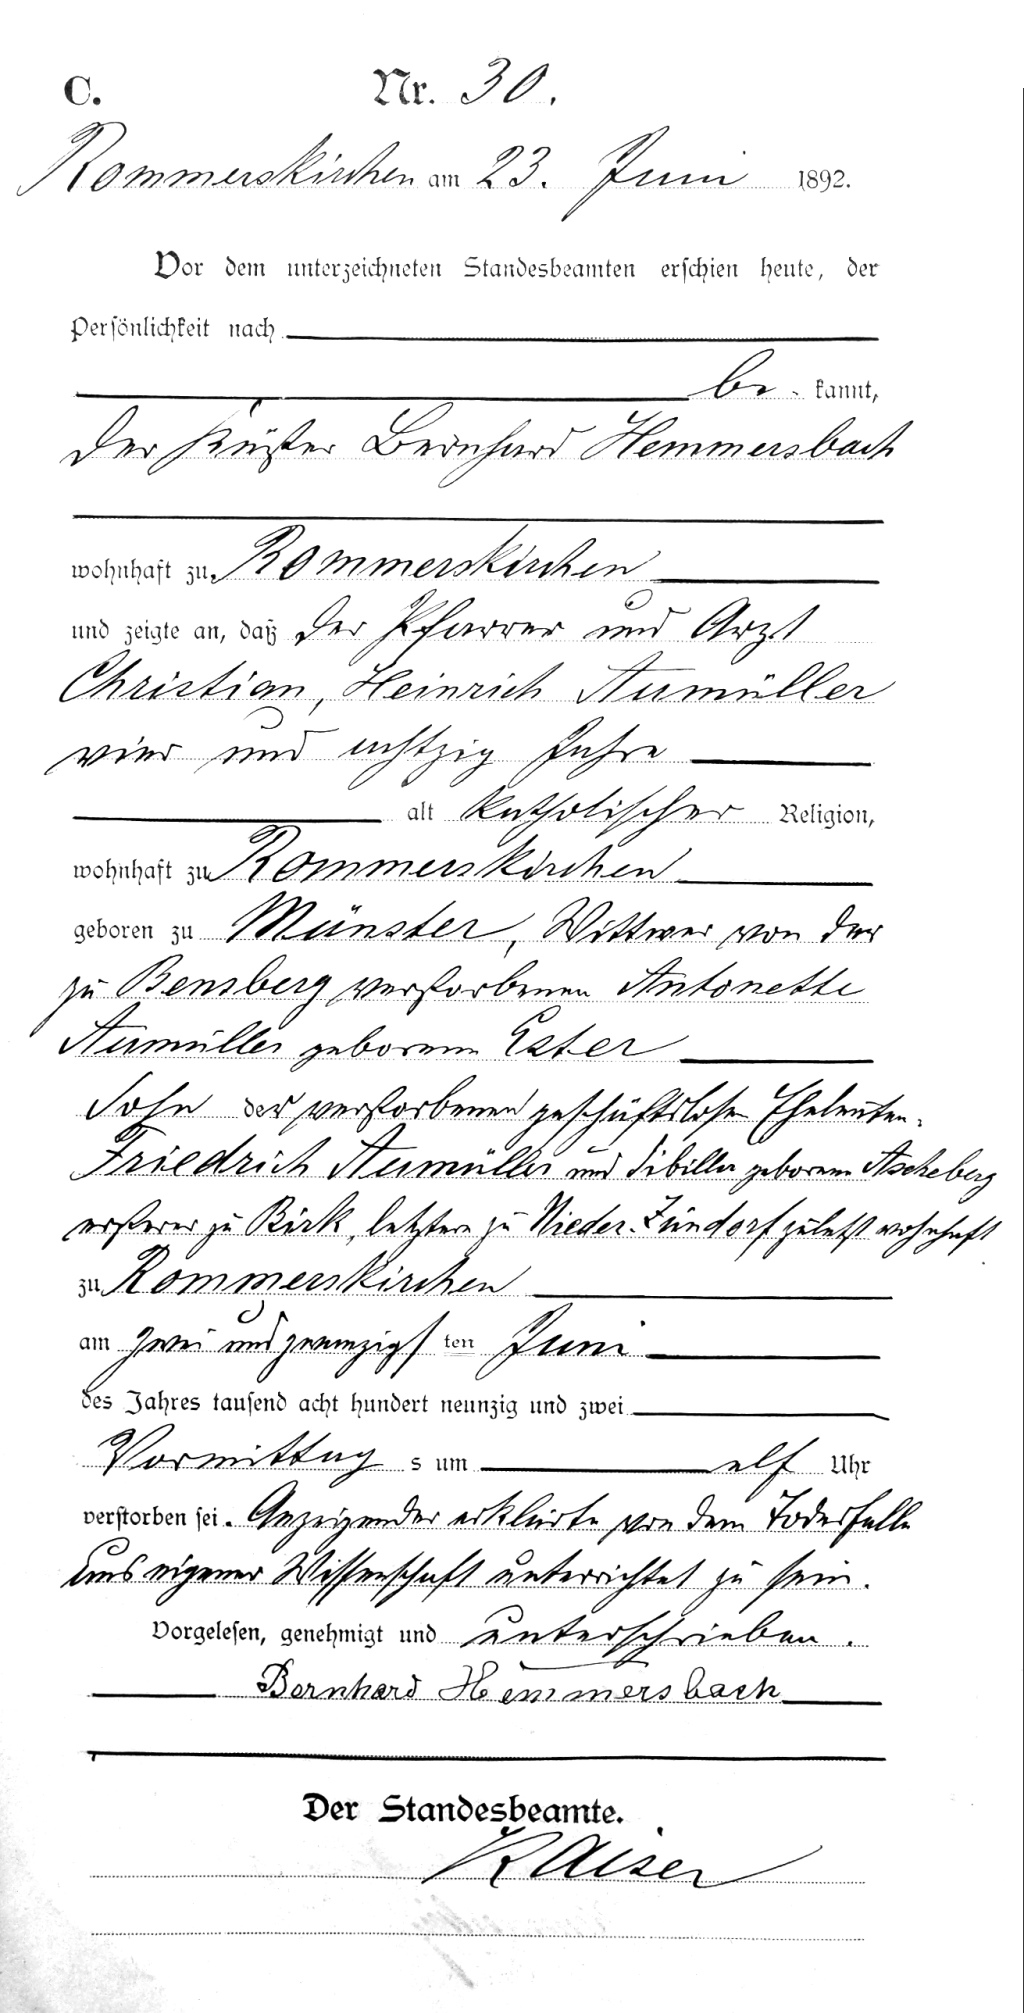 C. Nr. 30.
Rommerskirchen am 23. Juni 1892.
Vor dem unterzeichneten Standesbeamten erschien heute, der
Persönlichkeit nach
be- kannt,
der Küster Bernhard Hemmersbach
wohnhaft zu Rommerskirchen
und zeigte an, daß der Pfarrer und Arzt
Christian, Heinrich Aumüller
vier und achtzig Jahre
alt katholischer Religion,
wohnhaft zu Rommerskirchen
geboren zu Münster, Wittwer von der
zu Bensberg verstorbenen Antonette
Aumüller geborenen Ester
Sohn der verstorbenen geschäftslosen Eheleuten.
Friedrich Aumüller und Sibilla geborenen Ascheberg
ersterer zu Birk, letztere zu Nieder-Zündorf zuletzt wohnhaft
zu Rommerskirchen
am zwei und zwanzigs ten Juni
des Jahres tausend acht hundert neunzig und zwei
Vormittag s um elf Uhr
verstorben sei. Anzeigender erklärte von dem Todesfalle
aus eigener Wissenschaft unterrichtet zu sein.
Vorgelesen, genehmigt und unterschrieben.
Bernhard Hemmersbach
Der Standesbeamte.
Kaiser